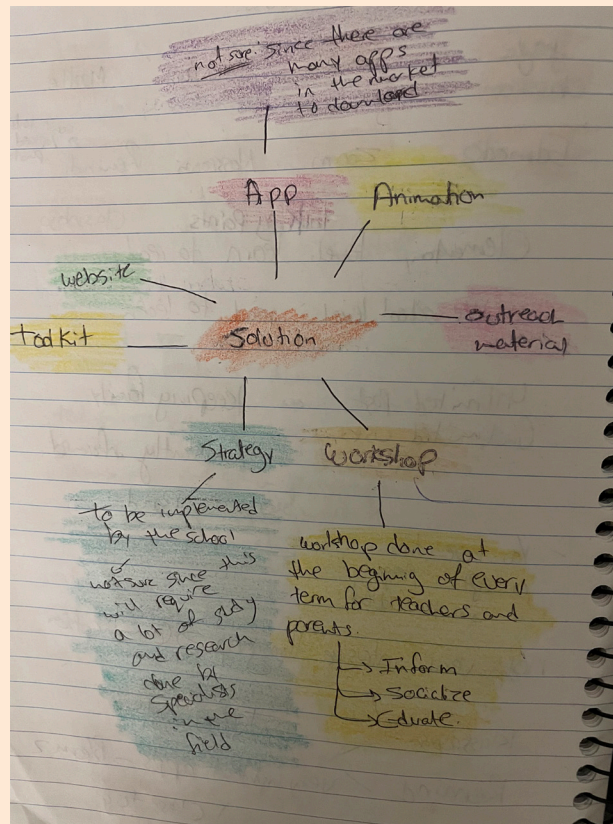 not sure since there are
many apps
in the market
to download
App
Animation
website
Solution
outreach
material
Toolkit
Strategy
Workshop
to be implemented
by the school
not sure since this
will require
a lot of study
and research
done by
specialists
in the
field
workshop done at
the beginning of every
term for teachers and
parents.
→ Inform
→ Socialize
→ Eduate.